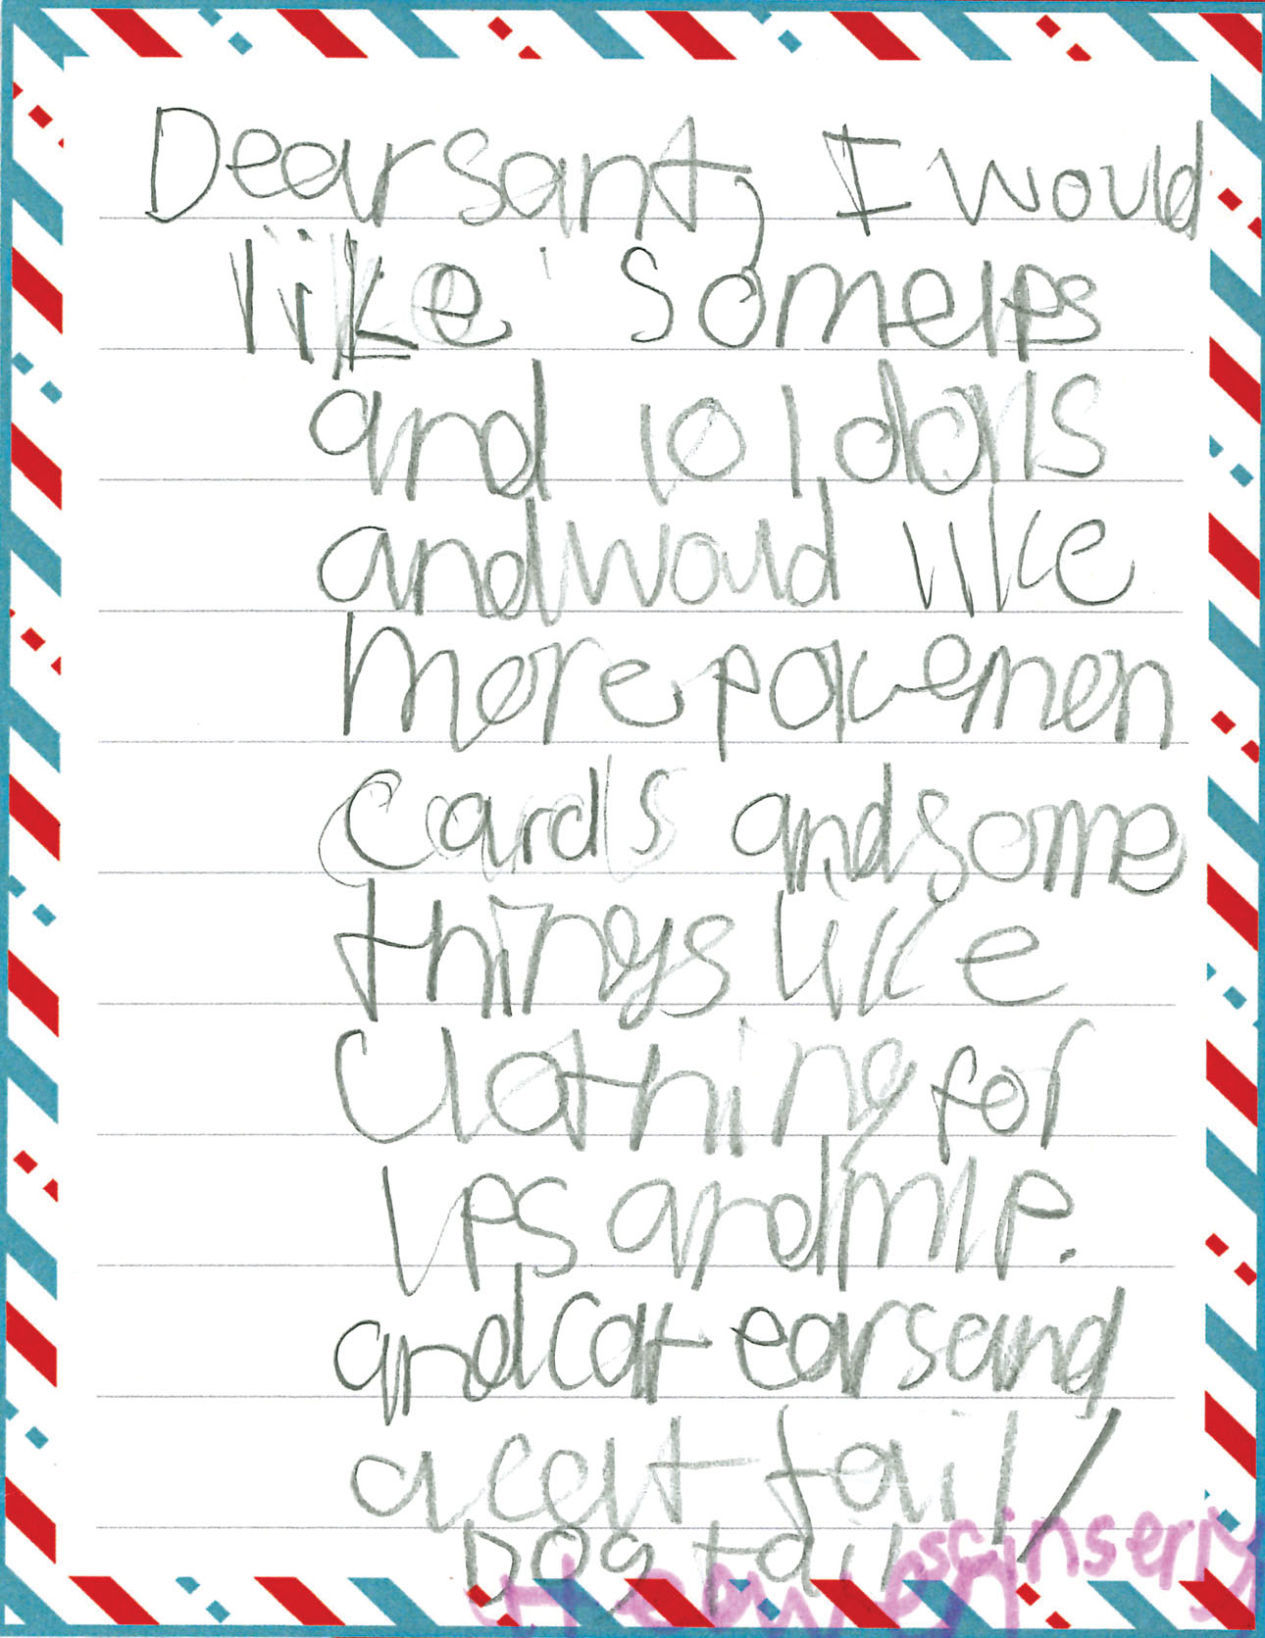 Dear Sant, I would
like some lps
and 101 dolls
and would like
more pokemon
cards and some
things like
clothing for
lps and mlp.
and cat ears and
a cat tail/
Dog tail
scinserly